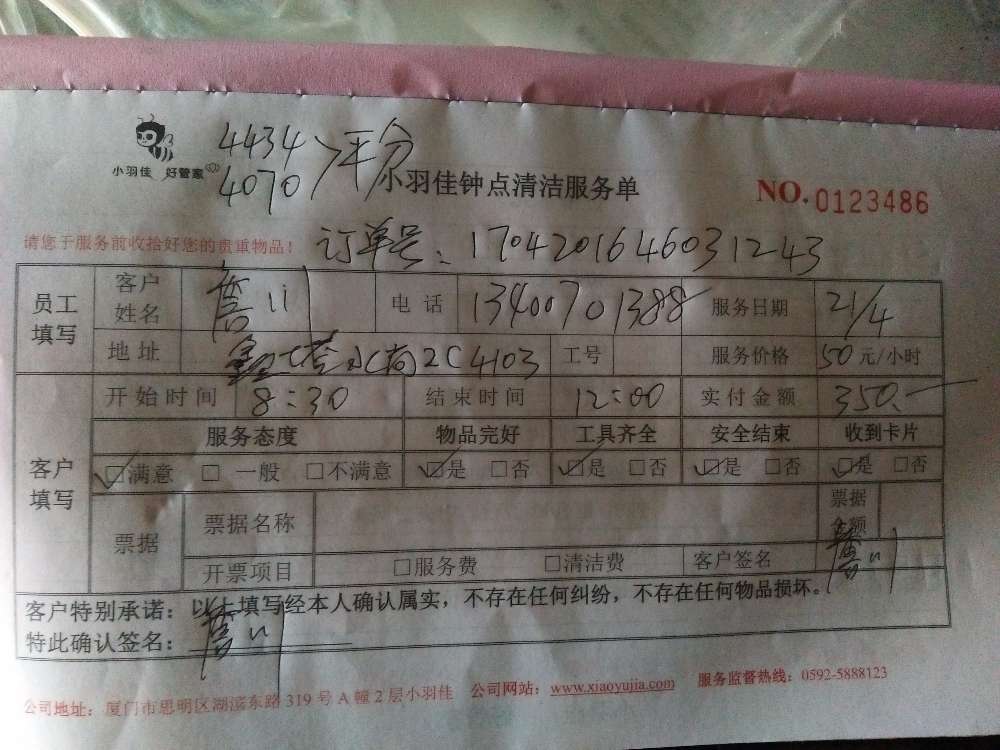 4434
4070 >平分
小羽佳 好管家
小羽佳钟点清洁服务单
NO.0123486
请您于服务前收拾好您的贵重物品!
订单号:1704201646031243
员工填写 客户姓名 詹川 电话 13400701388 服务日期 21/4
地址 2C4103 工号 服务价格 50元/小时
客户填写 开始时间 8:30 结束时间 12:00 实付金额 350.-
服务态度 物品完好 工具齐全 安全结束 收到卡片
☑满意 □一般 □不满意 ☑是 □否 ☑是 □否 ☑是 □否 ☑是 □否
票据 票据名称 票据金额
开票项目 □服务费 □清洁费 客户签名 詹川
客户特别承诺:以上填写经本人确认属实,不存在任何纠纷,不存在任何物品损坏。
特此确认签名:詹川
公司地址:厦门市思明区湖滨东路319号A幢2层小羽佳 公司网站:www.xiaoyujia.com 服务监督热线:0592-5888123